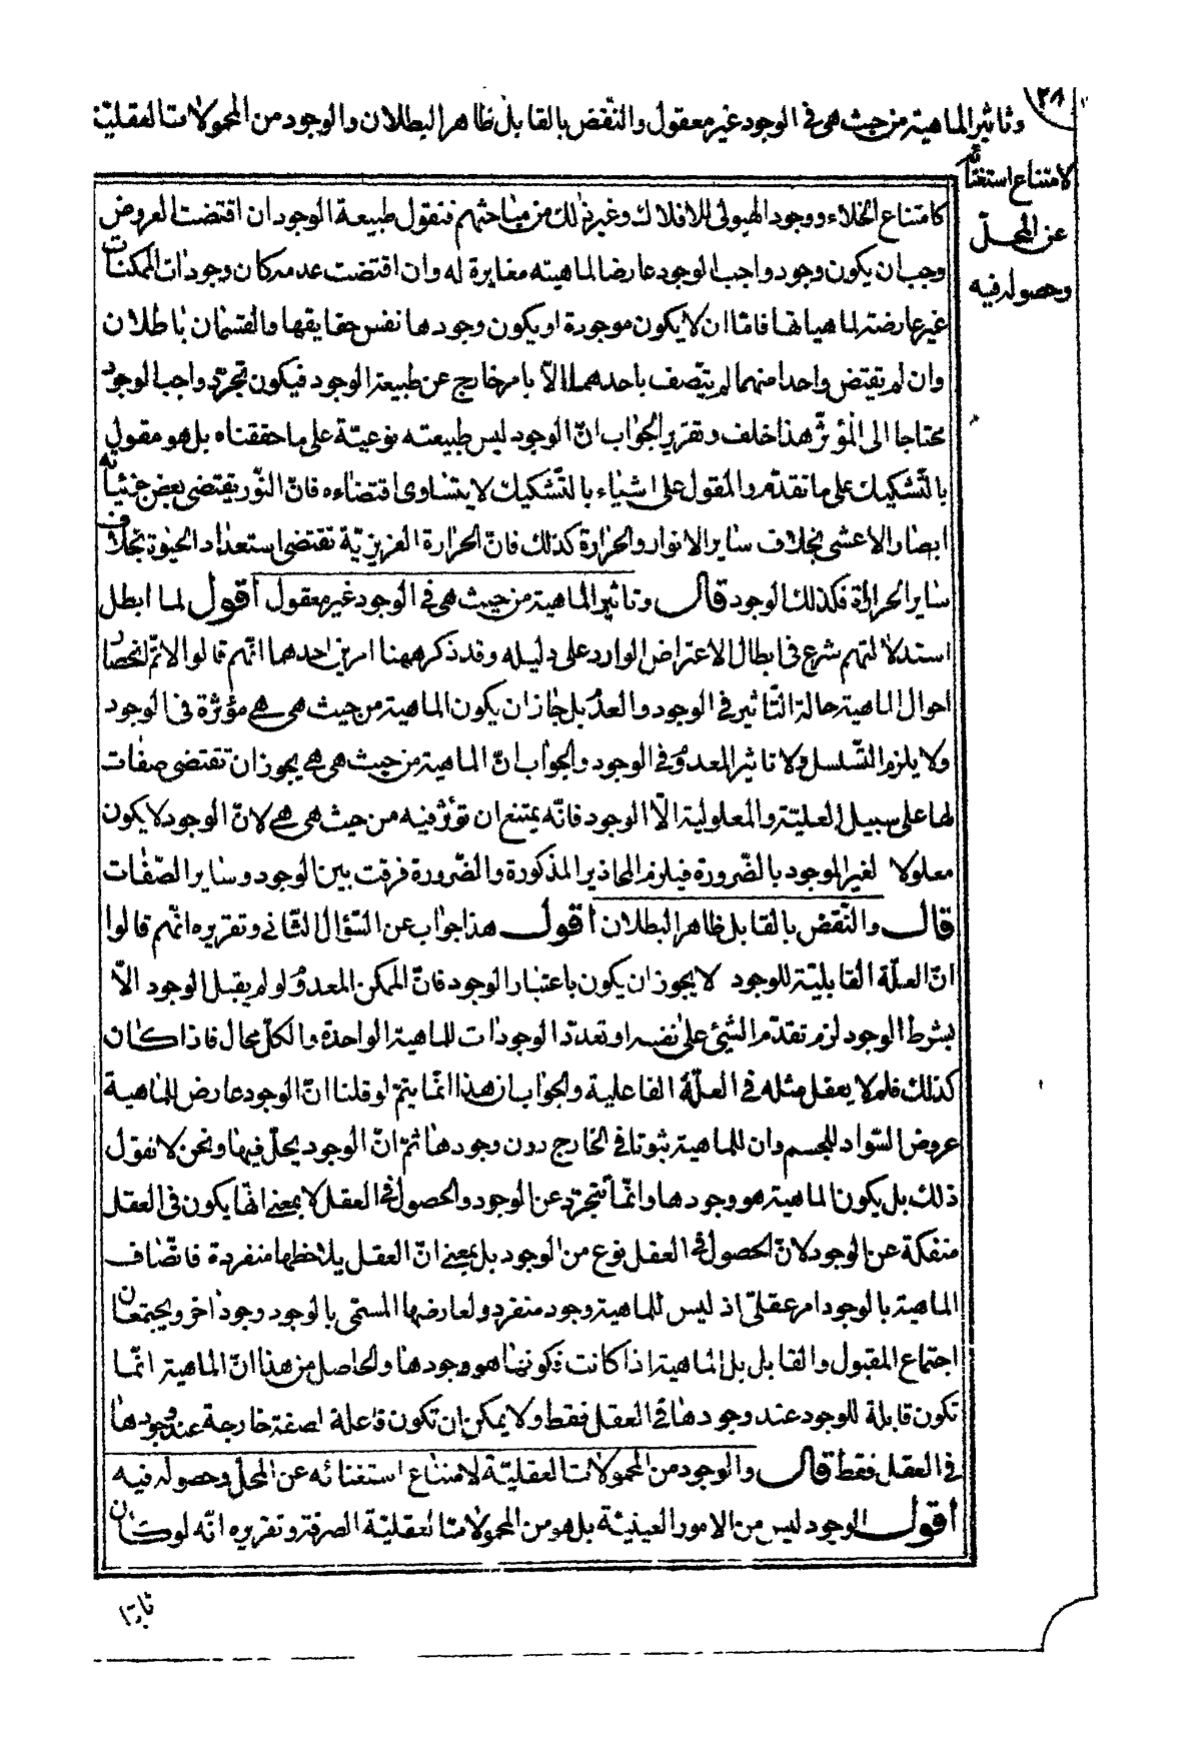 ٢٨
وتاثير الماهية من حيث هى فى الوجود غير معقول والنقض بالقابل ظاهر البطلان والوجود من المحمولات العقليّة
لامتناع استغنائه
عن المحلّ
وحصوله فيه
كامتناع الخلاء ووجود الهيولى للافلاك وغير ذلك من مباحثهم فنقول طبيعة الوجود ان اقتضت العروض
وجب ان يكون وجود واجب الوجود عارضا لماهيته مغايرة له وان اقتضت عدمه كان وجودات الممكنات
غير عارضة لماهياتها فامّا ان لا يكون موجودة او يكون وجودها نفس حقايقها والقسمان باطلان
وان لم تقتض واحدا منهما لم يتّصف باحدهما الاّ بامر خارج عن طبيعة الوجود فيكون تجرّد واجب الوجود
محتاجا الى المؤثّر هذا خلف وتقرير الجواب انّ الوجود ليس طبيعته نوعيّة على ما حققناه بل هو مقول
بالتّشكيك على ما تقدّم والمقول على اشياء بالتّشكيك لا يتساوى اقتضاءه فانّ النّور يقتضى بعض جزئياته
ابصار الاعشى بخلاف ساير الانوار والحرارة كذلك فانّ الحرارة الغريزيّة تقتضى استعداد الحيوة بخلاف
ساير الحرارة فكذلك الوجود قال وتاثير الماهية من حيث هى فى الوجود غير معقول أقول لما ابطل
استدلالتهم شرع فى ابطال الاعتراض الوارد على دليله وقد ذكر ههنا امرين احدهما انّهم قالوا لا تمّ انحصار
احوال الماهية حالة التّاثير فى الوجود والعدم بل جاز ان يكون الماهية من حيث هى هى مؤثرة فى الوجود
ولا يلزم التّسلسل ولا تاثير المعدوم فى الوجود والجواب انّ الماهية من حيث هى هى يجوز ان تقتضى صفات
لها على سبيل العليّة والمعلولية الاّ الوجود فانّه يمتنع ان تؤثر فيه من حيث هى هى لانّ الوجود لا يكون
معلولا لغير الموجود بالضّرورة فيلزم المحاذير المذكورة والضّرورة فرقت بين الوجود وساير الصّفات
قال والنّقض بالقابل ظاهر البطلان أقول هذا جواب عن السّؤال الثّانى وتقريره انّهم قالوا
انّ العلّة القابليّة للوجود لا يجوز ان يكون باعتبار الوجود فانّ الممكن المعدوم لو لم يقبل الوجود الاّ
بشرط الوجود لزم تقدّم الشّيئ على نفسه او تعدّد الوجودات للماهية الواحدة والكلّ محال فاذا كان
كذلك فلم لا يعقل مثله فى العلّة الفاعلية والجواب ان هذا انّما يتمّ لو قلنا انّ الوجود عارض للماهية
عروض السّواد للجسم وان للماهية ثبوتا فى الخارج دون وجودها ثمّ انّ الوجود يحلّ فيها ونحن لا نقول
ذلك بل يكون الماهية هو وجودها وانّما تتجرّد عن الوجود والحصول فى العقل لا بمعنى انّها يكون فى العقل
منفكة عن الوجود لانّ الحصول فى العقل نوع من الوجود بل بمعنى انّ العقل يلاحظها منفردة فاتّصاف
الماهية بالوجود امر عقلىّ اذ ليس للماهية وجود منفرد ولعارضها المسمّى بالوجود وجود اخر ويجتمعان
اجتماع المقبول والقابل بل الماهية اذا كانت فكونها هو وجودها والحاصل من هذا انّ الماهية انّما
تكون قابلة للوجود عند وجودها فى العقل فقط ولا يمكن ان تكون فاعلة لصفة خارجة عند وجودها
فى العقل فقط قال والوجود من المحمولات العقليّة لامتناع استغنائه عن المحلّ وحصوله فيه
أقول الوجود ليس من الامور العينيّة بل هو من المحمولات العقليّة الصرفة وتقريره انّه لو كان
ثابتا